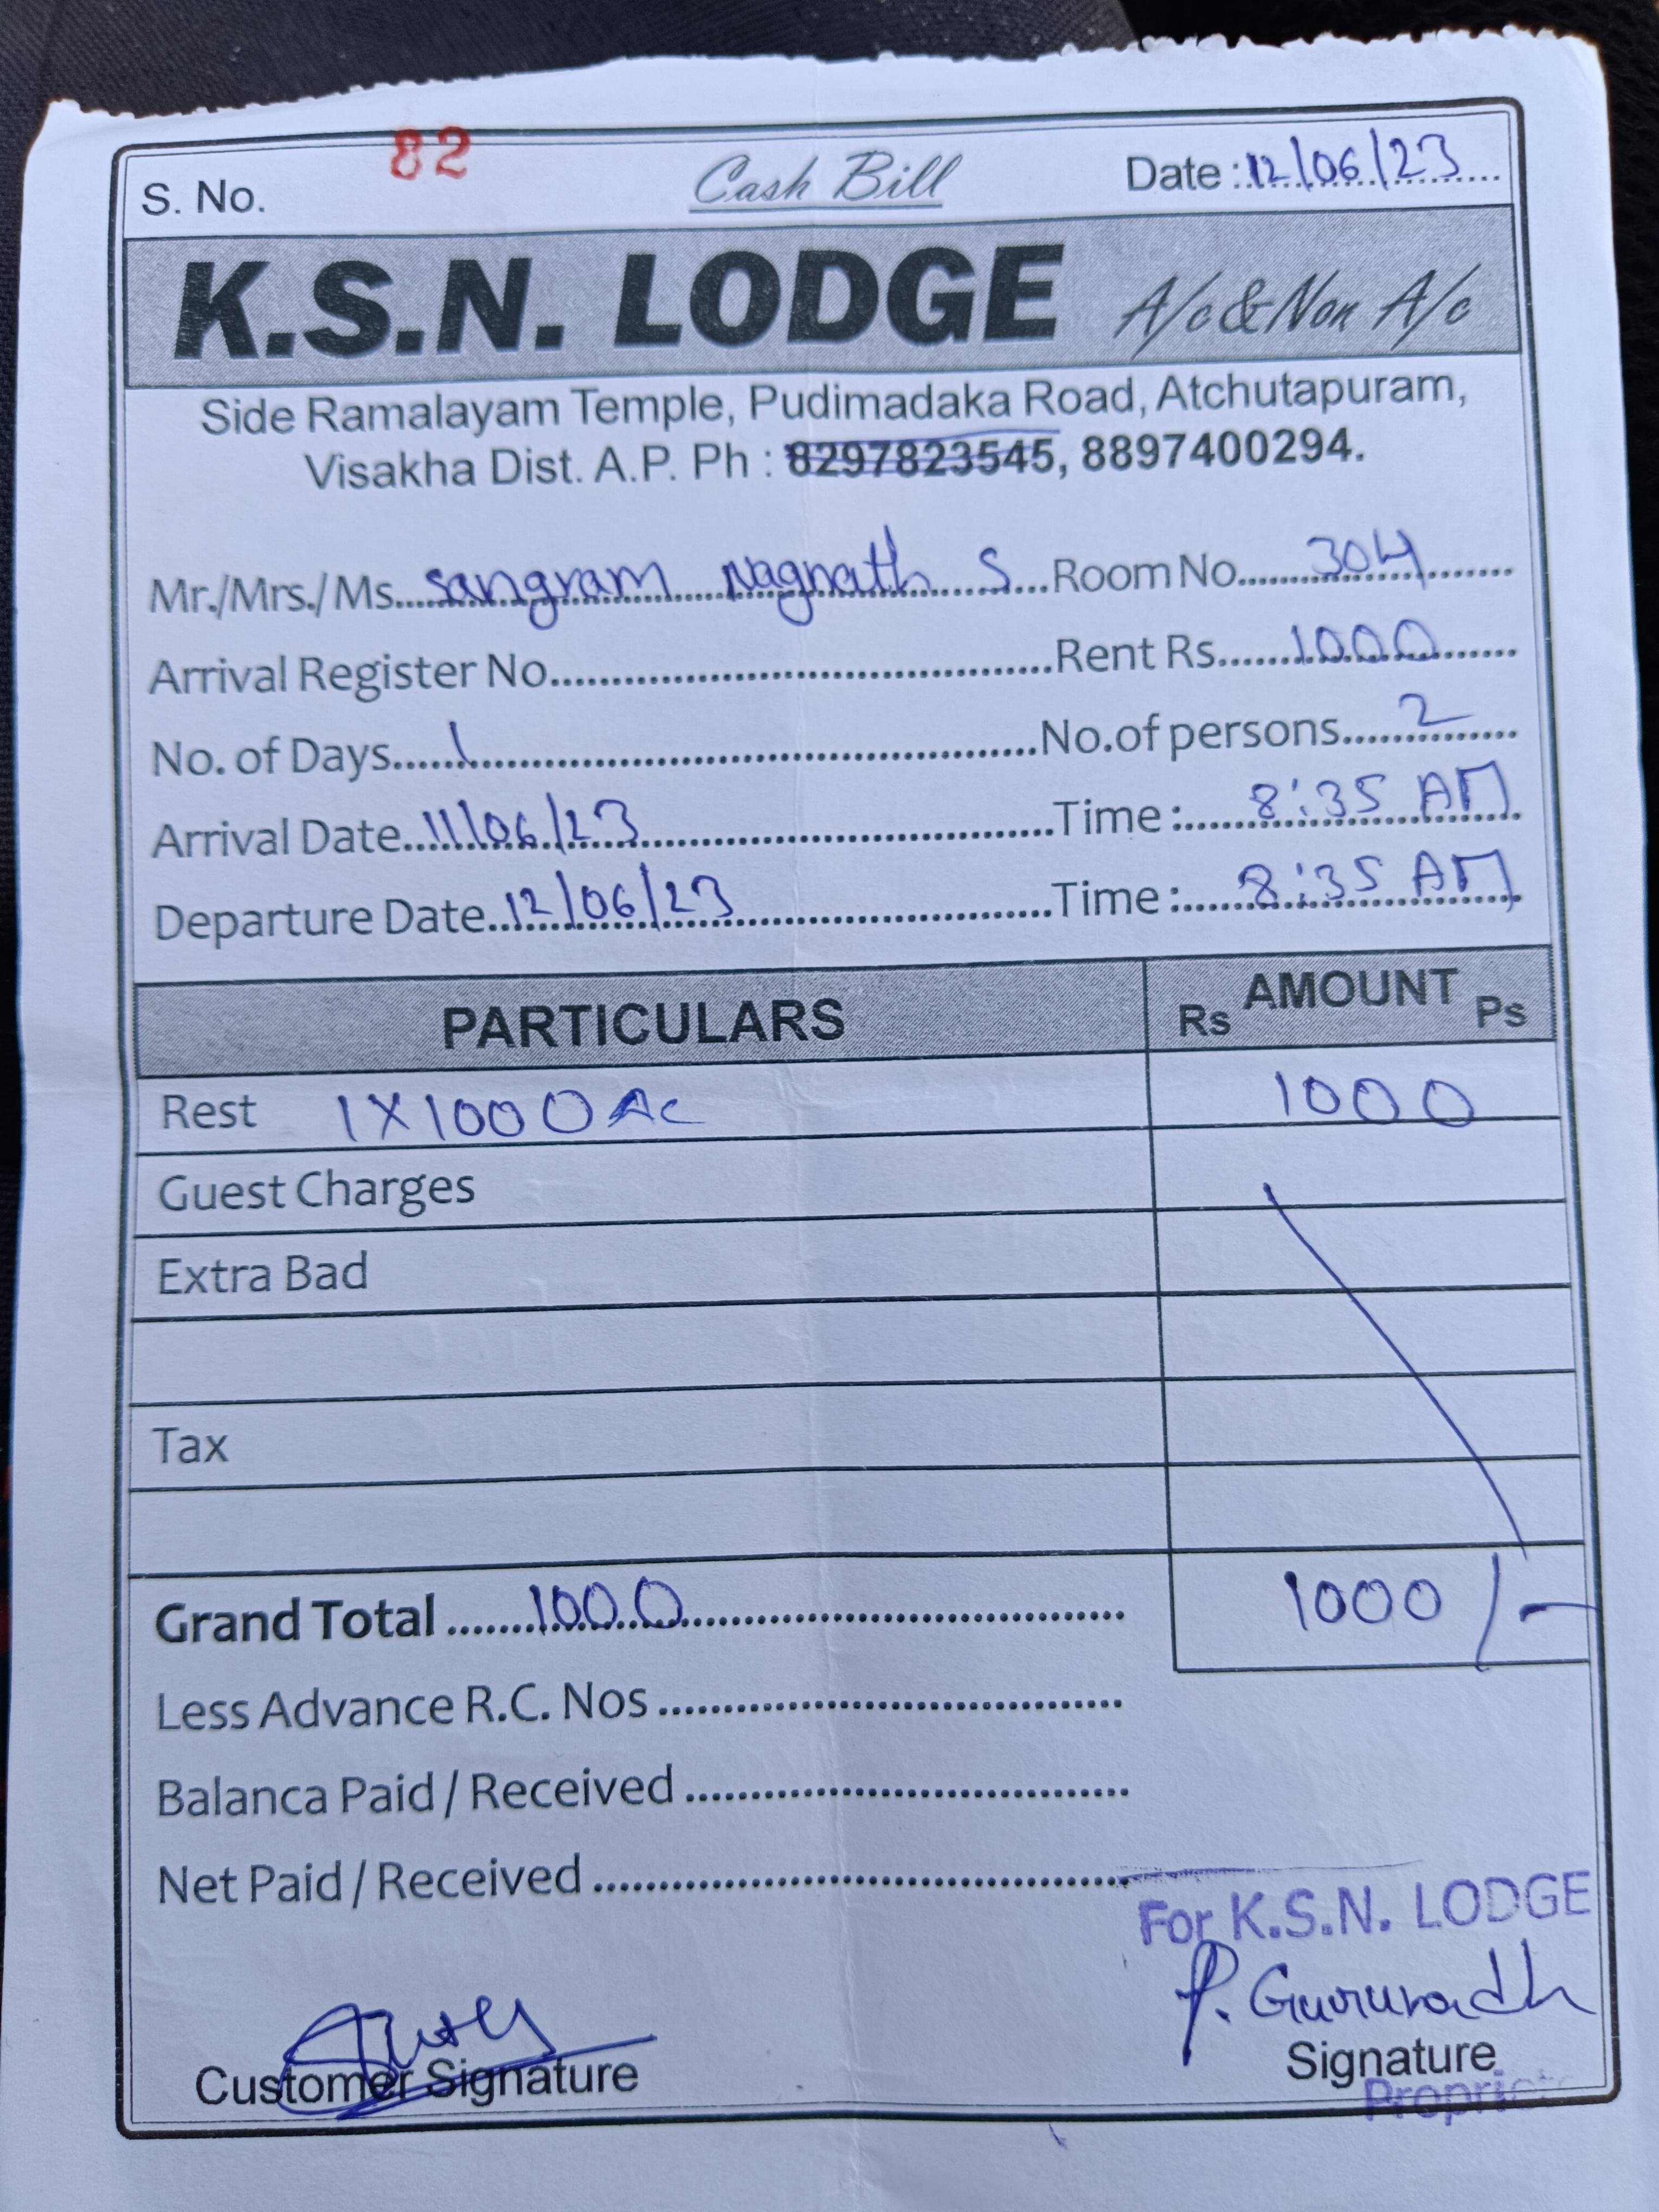 S. No. 82 Cash Bill Date : 12/06/23
K.S.N. LODGE A/c & Non A/c
Side Ramalayam Temple, Pudimadaka Road, Atchutapuram,
Visakha Dist. A.P. Ph : 8297823545, 8897400294.
Mr./Mrs./Ms. sangram Nagnath S Room No. 304
Arrival Register No. Rent Rs. 1000
No. of Days 1 No.of persons 2
Arrival Date 11/06/23 Time : 8:35 AM
Departure Date 12/06/23 Time : 8:35 AM
PARTICULARS Rs AMOUNT Ps
Rest 1X1000 AC 1000
Guest Charges
Extra Bad
Tax
Grand Total 1000 1000/-
Less Advance R.C. Nos
Balanca Paid / Received
Net Paid / Received
For K.S.N. LODGE
Customer Signature Signature